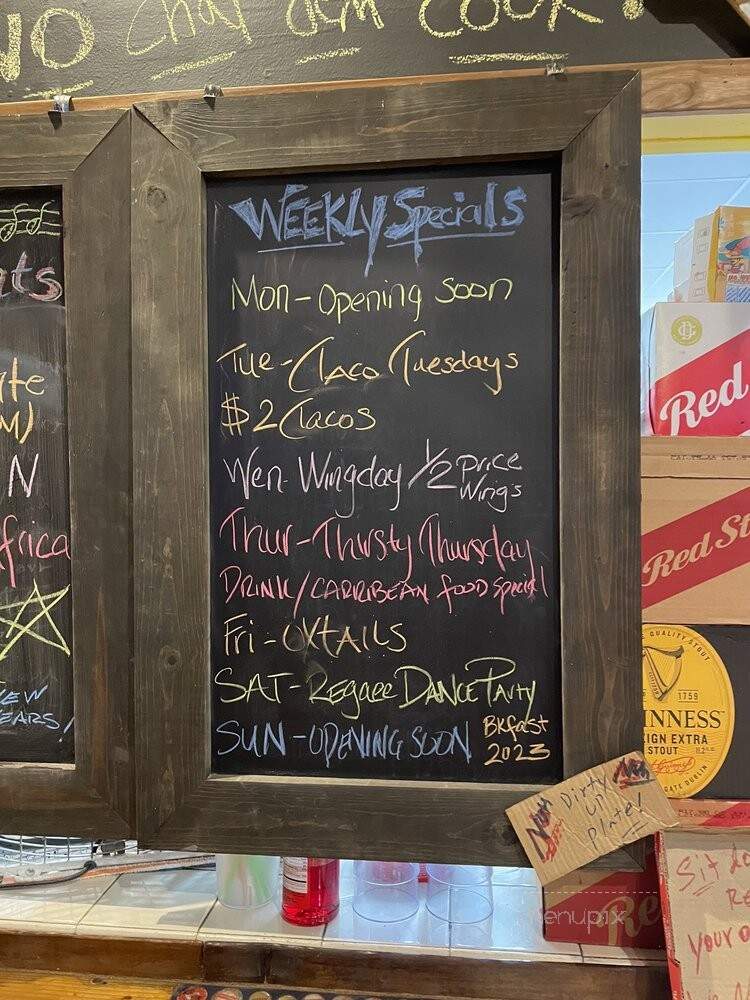 NO chat dem cook!
WEEKLY Specials
Mon-Opening soon
Tue-Taco Tuesdays
$2 Tacos
Wen-Wingday/½ price Wings
Thur-Thirsty Thursday
DRINK/CARRIBEAN food special
Fri-OXTAILS
SAT-Regaee DANCE Party
SUN-OPENING SOON Bkfast 2023
N
frica
Red
Red St
QUALITY STOUT
1759
INNESS
IGN EXTRA
STOUT
GATE DUBLIN
Dirty
up
Plate!
Sit
your
Re
menupix